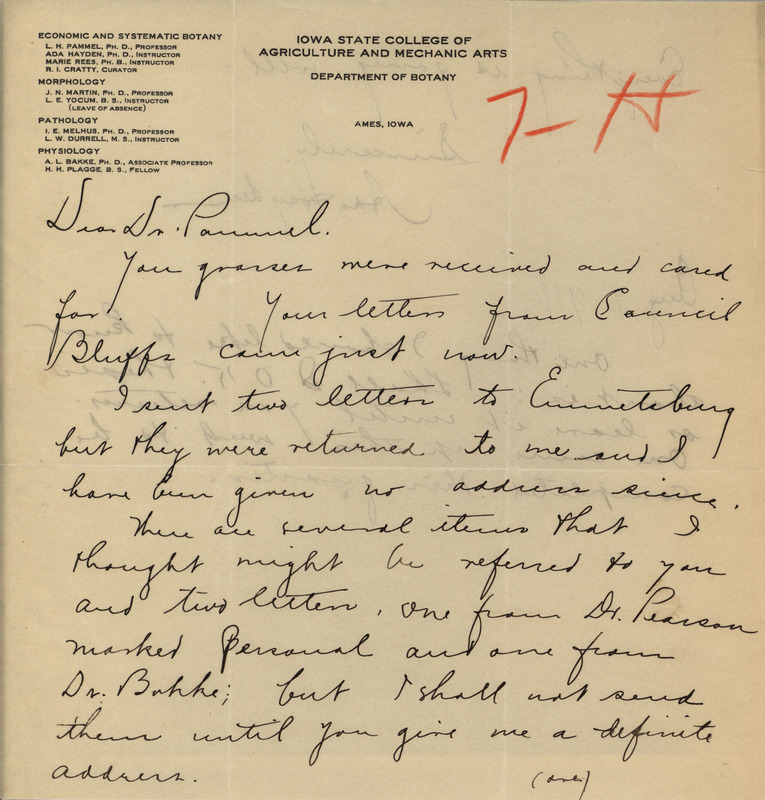 ECONOMIC AND SYSTEMATIC BOTANY
L. H. PAMMEL, PH. D., PROFESSOR
ADA HAYDEN, PH. D., INSTRUCTOR
MARIE REES, PH. B., INSTRUCTOR
R. I. CRATTY, CURATOR
MORPHOLOGY
J. N. MARTIN, PH. D., PROFESSOR
L. E. YOCUM, B. S., INSTRUCTOR
(LEAVE OF ABSENCE)
PATHOLOGY
I. E. MELHUS, PH. D., PROFESSOR
L. W. DURRELL, M. S., INSTRUCTOR
PHYSIOLOGY
A. L. BAKKE, PH. D., ASSOCIATE PROFESSOR
H. H. PLAGGE, B. S., FELLOW
IOWA STATE COLLEGE OF
AGRICULTURE AND MECHANIC ARTS
DEPARTMENT OF BOTANY
AMES, IOWA
7-H
Dear Dr. Pammel.
You grasses were received and cared
for. Your letters from Council
Bluffs came just now.
I sent two letters to Emmetsburg
but they were returned to me and I
have been given no address since.
There are several items that I
thought might be referred to you
and two letters, one from Dr. Pearson
marked Personal and one from
Dr. Bakke; but I shall not send
them until you give me a definite
address.
(over)